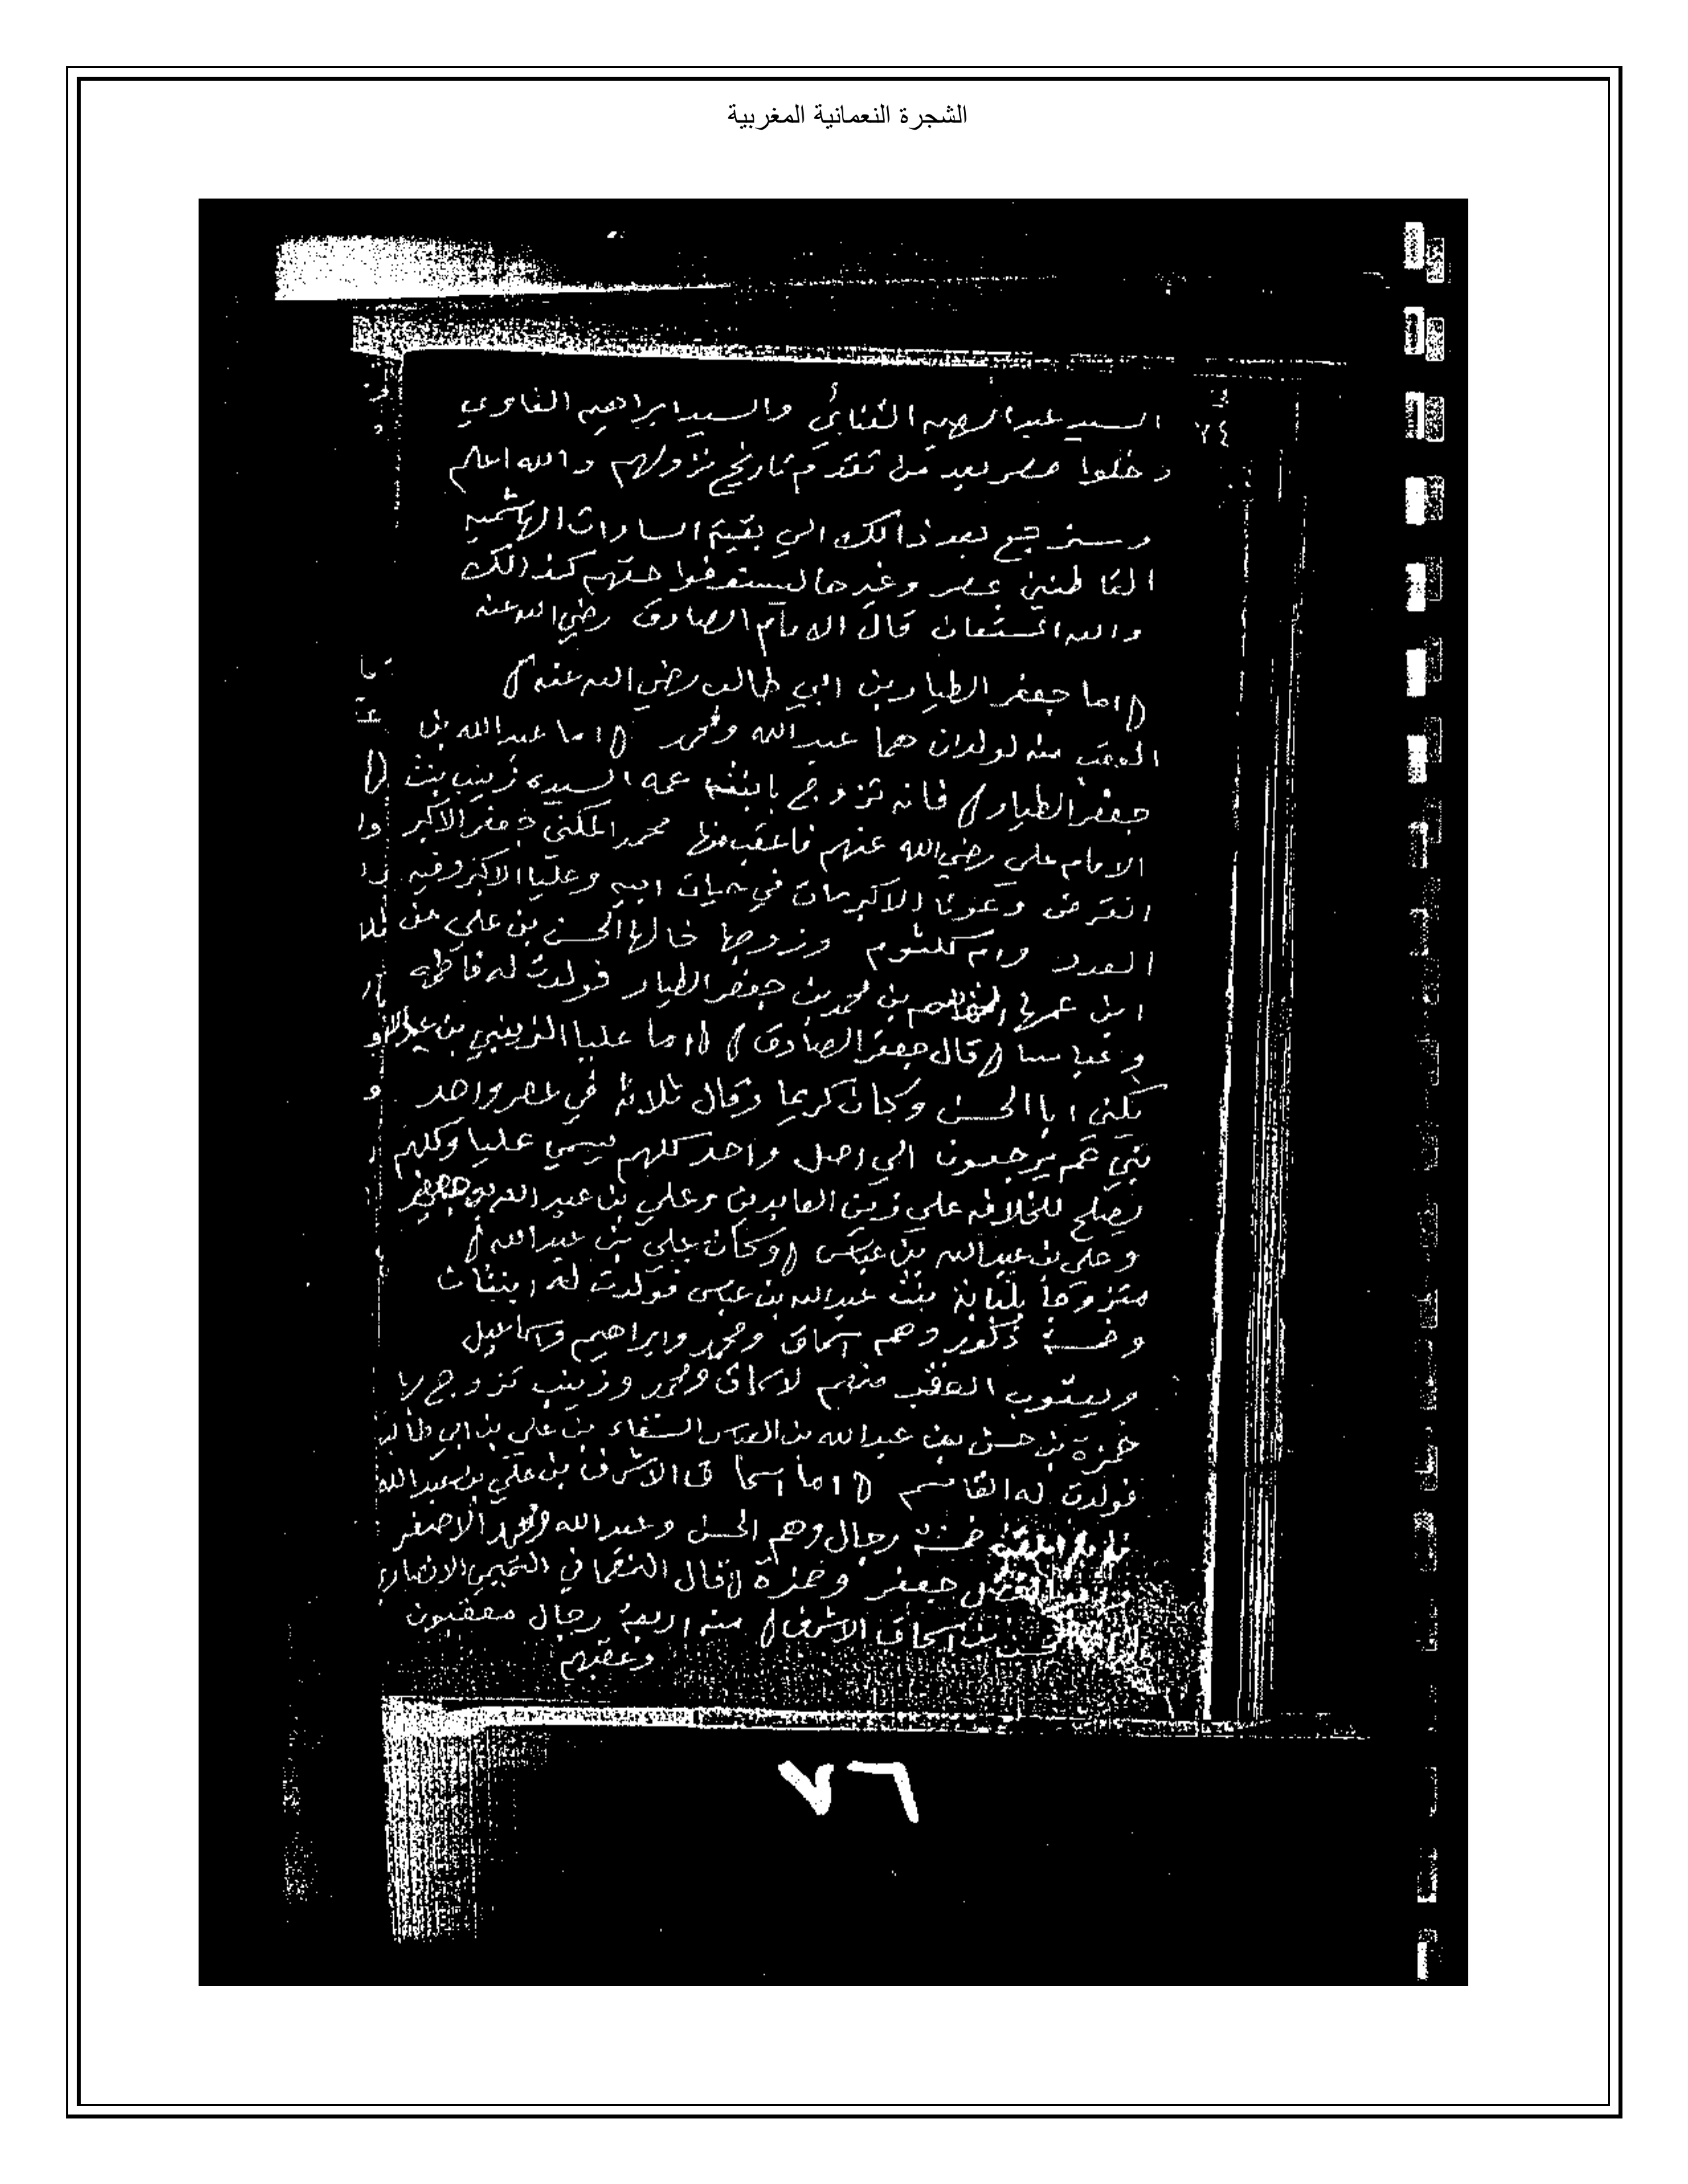 الشجرة النعمانية المغربية
٧٤
السيد عبد الرحيم القنائي والسيد ابراهيم الفاوي
دخلوا مصر بعد من تقدم تاريخ نزولهم والله اعلم
وسنرجع بعد ذالك الي بقية السادات الهاشميه
القاطنين بمصر وغيرها ليستوفوا حقهم كذالك
والله المستعان قال الامام الصادق رضي الله عنه
(اما جعفر الطيار بن ابي طالب رضي الله عنه)
العقب منه لولدان هما عبد الله ومحمد (اما عبد الله بن
جعفر الطيار) فانه تزوج بابنت عمه السيده زينب بنت
الامام علي رضي الله عنهم فاعقب منها محمد المكني جعفر الاكبر
انقرض وعونا الاكبر مات في حيات ابيه وعليا الاكبر وفيه
العدد وام كلثوم وزوجها خالها الحسن بن علي من
ابن عمها القاسم بن محمد بن جعفر الطيار فولدت له فاطمه
وعباسا (قال جعفر الصادق) (اما عليا الزينبي بن عبد الله
يكني ابا الحسن وكان كريما وقال ثلاثه في عصر واحد
بني عم يرجعون الي اصل واحد كلهم يسمي عليا وكلهم
يصلح للخلافه علي زين العابدين وعلي بن عبد الله بن جعفر
وعلي بن عبد الله بن عباس (وكان علي بن عبد الله)
متزوجا بلبابة بنت عبد الله بن عباس فولدت له ابنتان
وخمسة ذكور وهم اسحاق ومحمد وابراهيم واسماعيل
ويعقوب العقب منهم لاسحاق ومحمد وزينب تزوج بها
حمزة بن حسن بن عبد الله بن العباس السقاء بن علي بن ابي طالب
فولدت له القاسم (اما اسحاق الاشرف بن علي بن عبد الله
خمسة رجال وهم الحسن وعبد الله ومحمد الاصغر
جعفر وحمزة (قال النعماني التميمي الانصاري
بن اسحاق الاشرف) منه اربعة رجال معقبون
وعقبهم
٧٦